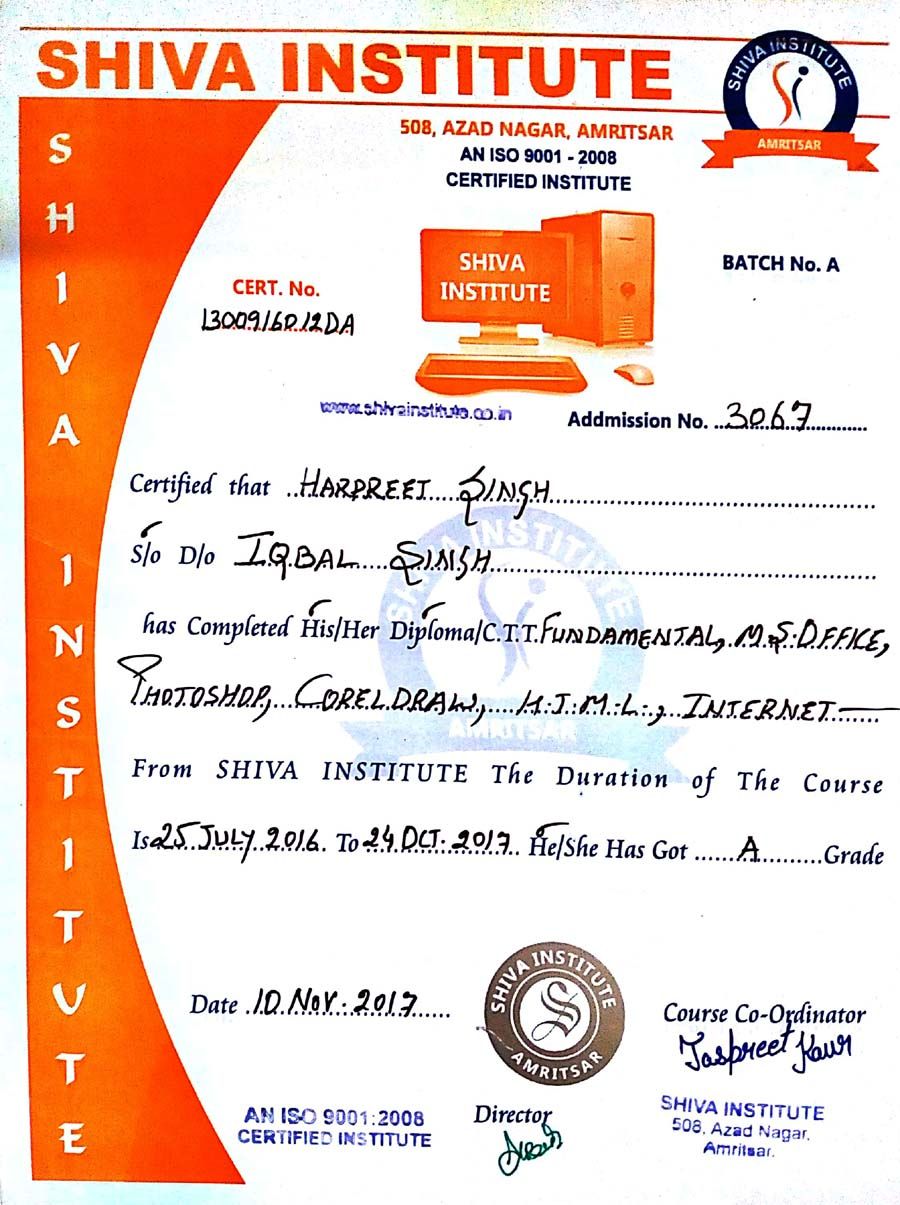 SHIVA INSTITUTE
SHIVA INSTITUTE
AMRITSAR
508, AZAD NAGAR, AMRITSAR
AN ISO 9001 - 2008
CERTIFIED INSTITUTE
SHIVA INSTITUTE
SHIVA
INSTITUTE
BATCH No. A
CERT. No.
www.shivainstitute.co.in
Addmission No. 3067
Certified that HARPREET SINGH
S/o D/o IQBAL SINGH
SHIVA INSTITUTE
has Completed His/Her Diploma/C.T.T. FUNDAMENTAL, M.S. OFFICE,
PHOTOSHOP, CORELDRAW, H.T.M.L., INTERNET
AMRITSAR
From SHIVA INSTITUTE The Duration of The Course
Is 25 JULY 2016 To 24 OCT. 2017 He/She Has Got A Grade
Date 10 NOV. 2017
SHIVA INSTITUTE
AMRITSAR
Course Co-Ordinator
Jaspreet Kaur
AN ISO 9001:2008
CERTIFIED INSTITUTE
Director
SHIVA INSTITUTE
508, Azad Nagar,
Amritsar.